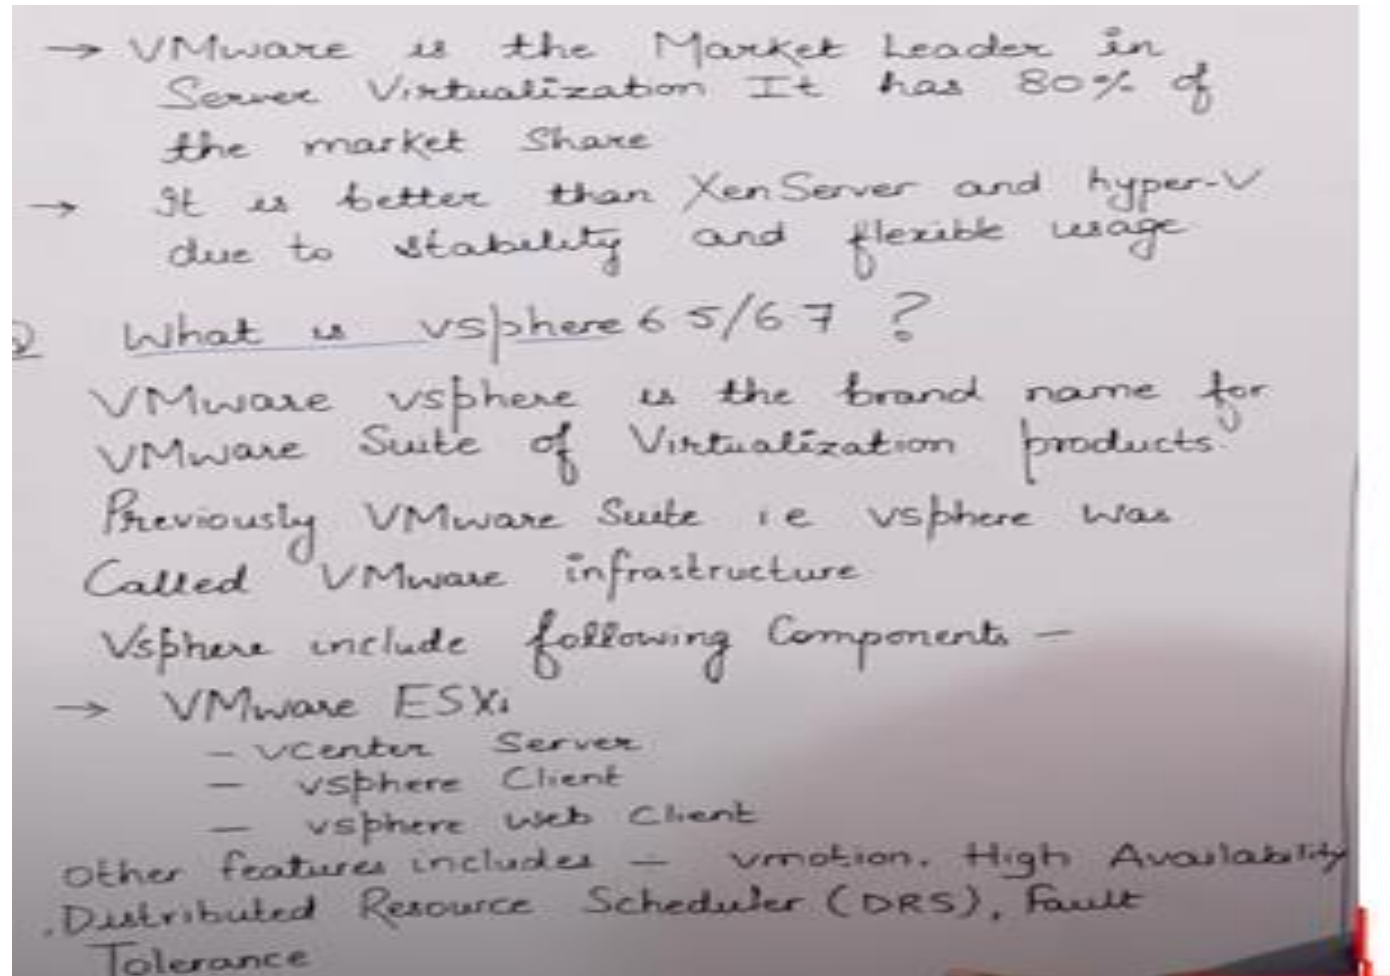 → VMware is the Market Leader in
Server Virtualization It has 80% of
the market Share
→ It is better than XenServer and hyper-V
due to stability and flexible usage
Q What is vsphere 6 5/6 7 ?
VMware vsphere is the brand name for
VMware Suite of Virtualization products.
Previously VMware Suite i e vsphere was
Called VMware infrastructure
Vsphere include following Components —
→ VMware ESXi
– vcenter Server
– vsphere Client
– vsphere web Client
Other features includes – vmotion. High Availability
. Distributed Resource Scheduler (DRS), Fault
Tolerance